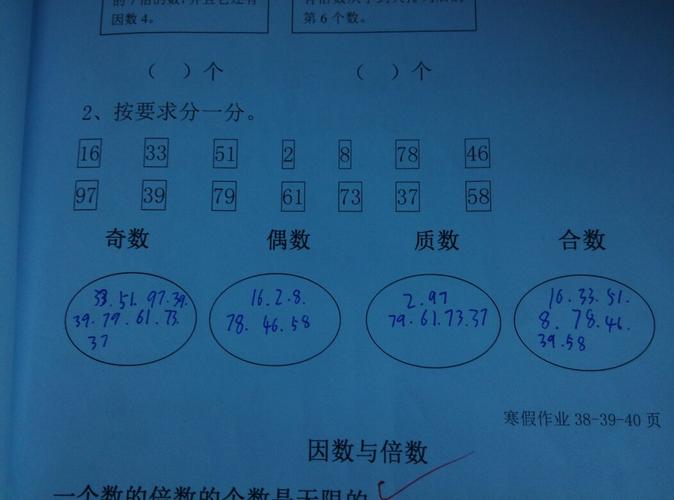 因数4。
第6个数。
（ ）个 （ ）个
2、按要求分一分。
16 33 51 2 8 78 46
97 39 79 61 73 37 58
奇数 偶数 质数 合数
33.51.97.39.
39.79.61.73.
37
16.2.8.
78.46.58
2.97
79.61.73.37
16.33.51.
8.78.46.
39.58
寒假作业 38-39-40 页
因数与倍数
一个数的倍数的个数是无限的